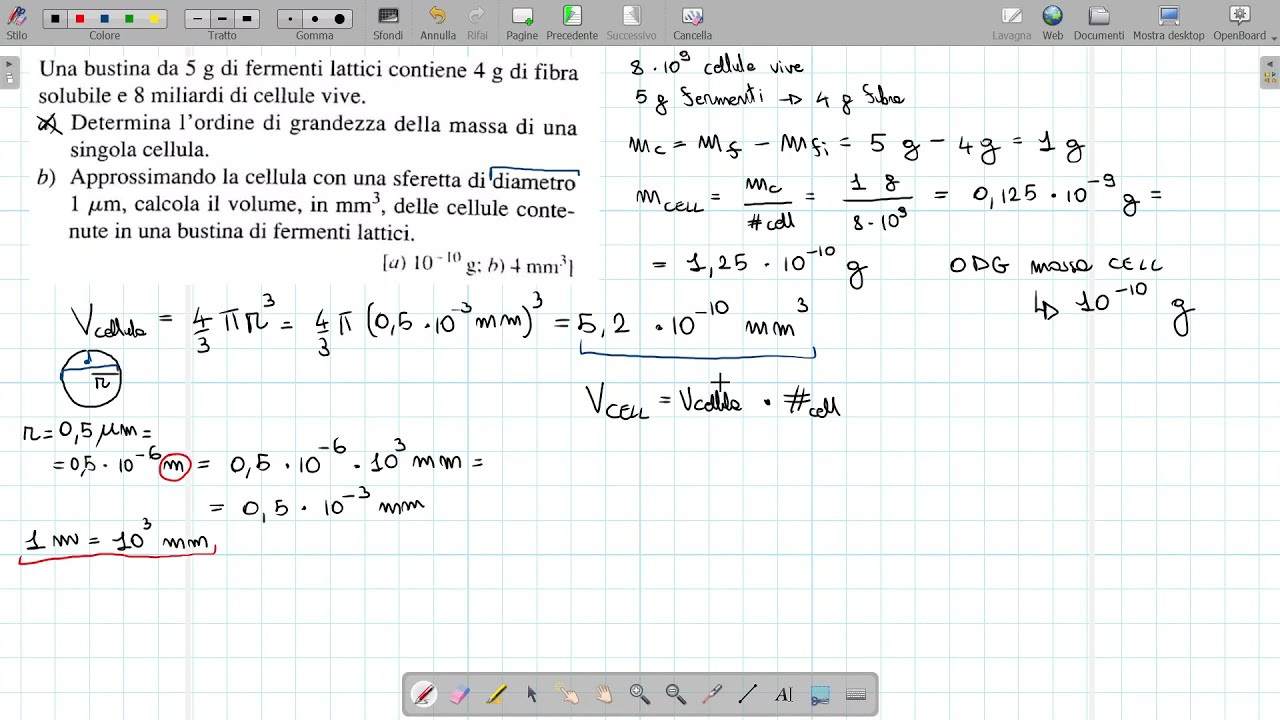 Stilo Colore Tratto Gomma Sfondi Annulla Rifai Pagine Precedente Successivo Cancella Lavagna Web Documenti Mostra desktop OpenBoard
Una bustina da 5 g di fermenti lattici contiene 4 g di fibra
solubile e 8 miliardi di cellule vive.
a) Determina l'ordine di grandezza della massa di una
singola cellula.
b) Approssimando la cellula con una sferetta di diametro
1 μm, calcola il volume, in mm³, delle cellule conte-
nute in una bustina di fermenti lattici.
[a) 10⁻¹⁰ g; b) 4 mm³]
8 · 10⁹ cellule vive
5 g fermenti → 4 g fibra
m_C = m_f − m_fi = 5 g − 4 g = 1 g
m_CELL = m_C / #cell = 1 g / 8 · 10⁹ = 0,125 · 10⁻⁹ g =
= 1,25 · 10⁻¹⁰ g
ODG massa CELL
↳ 10⁻¹⁰ g
V_cellula = 4/3 π r³ = 4/3 π (0,5 · 10⁻³ mm)³ = 5,2 · 10⁻¹⁰ mm³
d
r
V_CELL = V_cellula · #cell
r = 0,5 μm =
= 0,5 · 10⁻⁶ m = 0,5 · 10⁻⁶ · 10³ mm =
= 0,5 · 10⁻³ mm
1 m = 10³ mm
AI